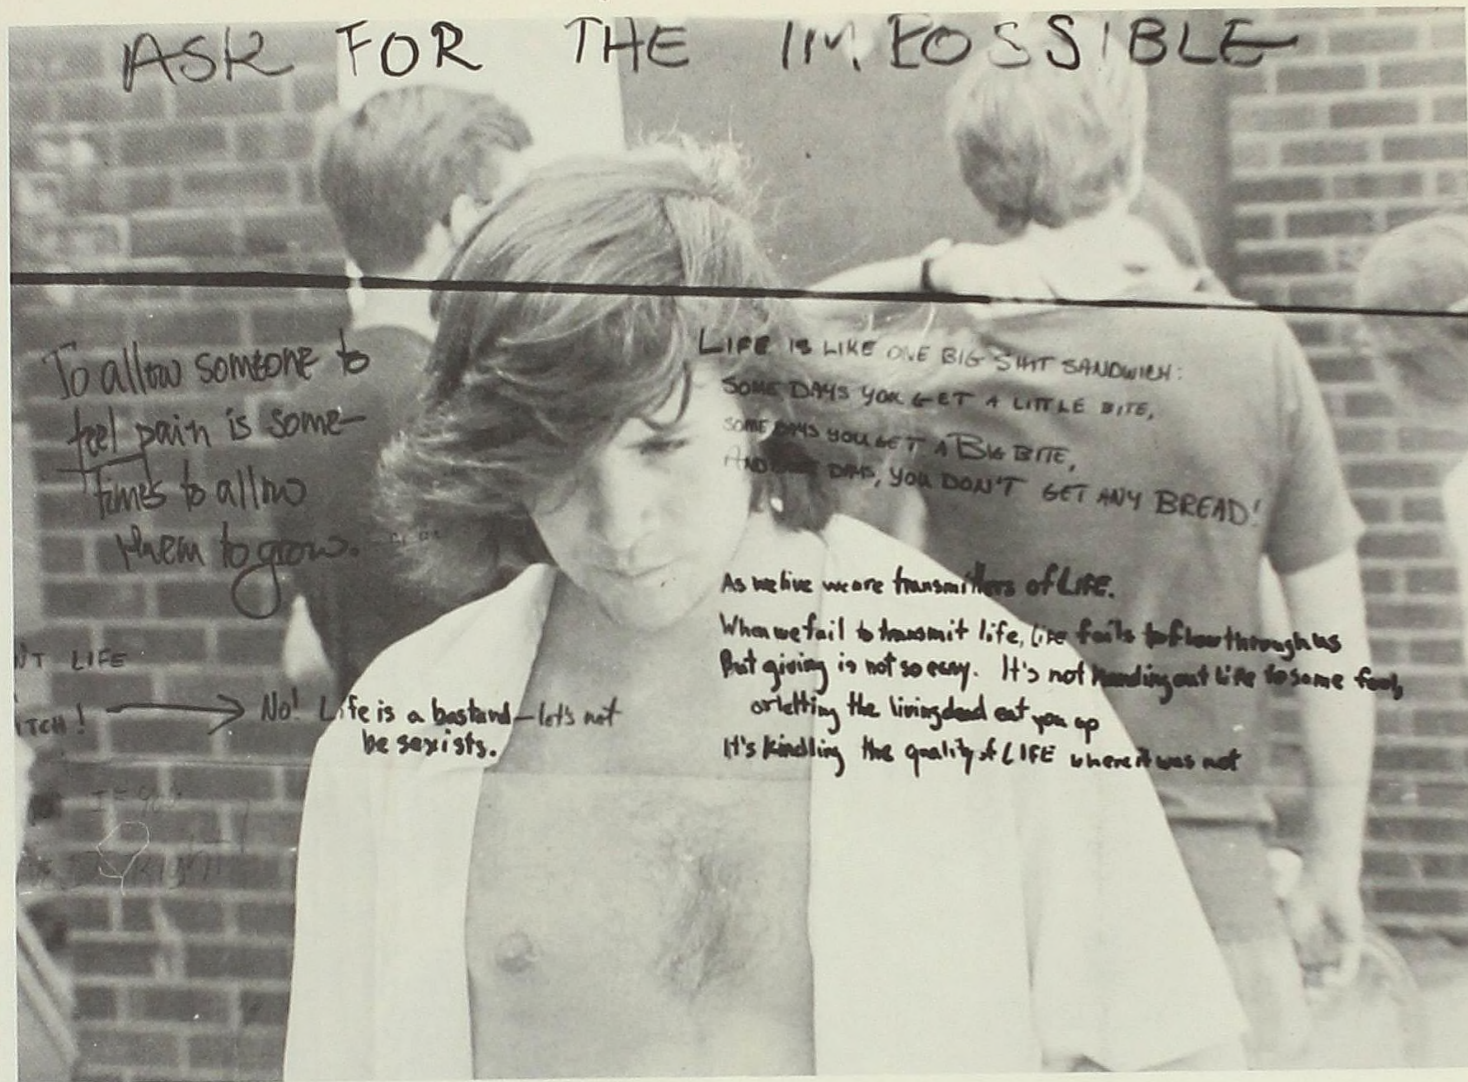 ASK FOR THE IMPOSSIBLE
To allow someone to
feel pain is some-
times to allow
them to grow.
LIFE IS LIKE ONE BIG SHIT SANDWICH:
SOME DAYS YOU GET A LITTLE BITE,
SOME DAYS YOU GET A BIG BITE,
AND DAYS, YOU DON'T GET ANY BREAD!
As we live we are transmitters of LIFE.
When we fail to transmit life, life fails to flow through us
But giving is not so easy. It's not handing out life to some fool,
or letting the living dead eat you up
It's kindling the quality of LIFE where it was not
N'T LIFE
ITCH!
No! Life is a bastard—let's not
be sexists.
IF YOU